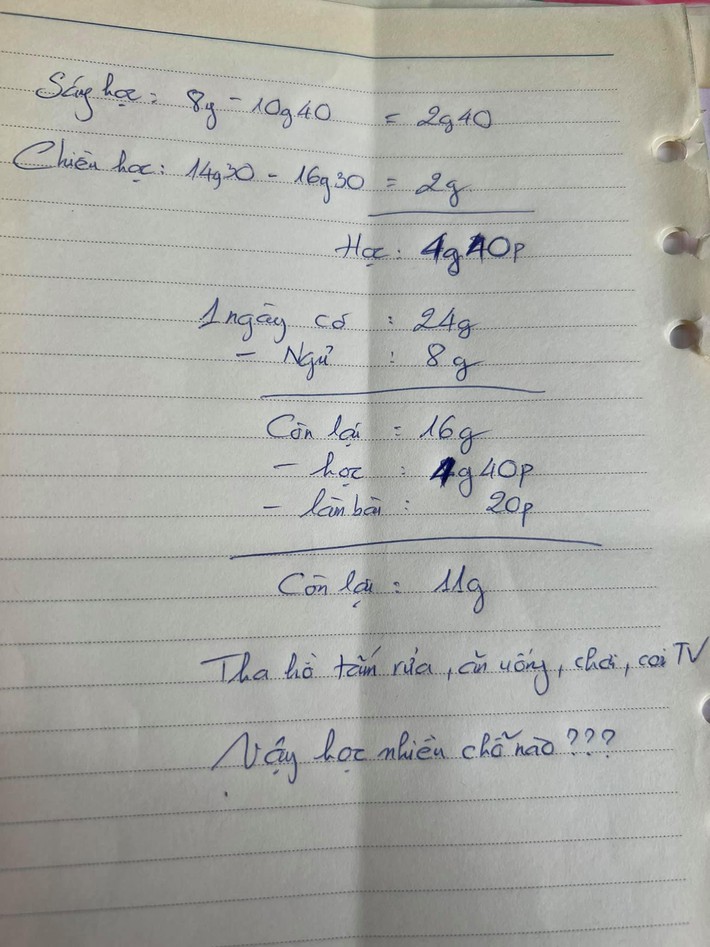 Sáng học: 8g - 10g40 = 2g40
Chiều học: 14g30 - 16g30 = 2g
Học: 4g40p
1 ngày có : 24g
- Ngủ : 8g
Còn lại = 16g
- học : 4g40p
- làm bài : 20p
Còn lại = 11g
Tha hồ tắm rửa, ăn uống, chơi, coi TV
Vậy học nhiều chỗ nào???